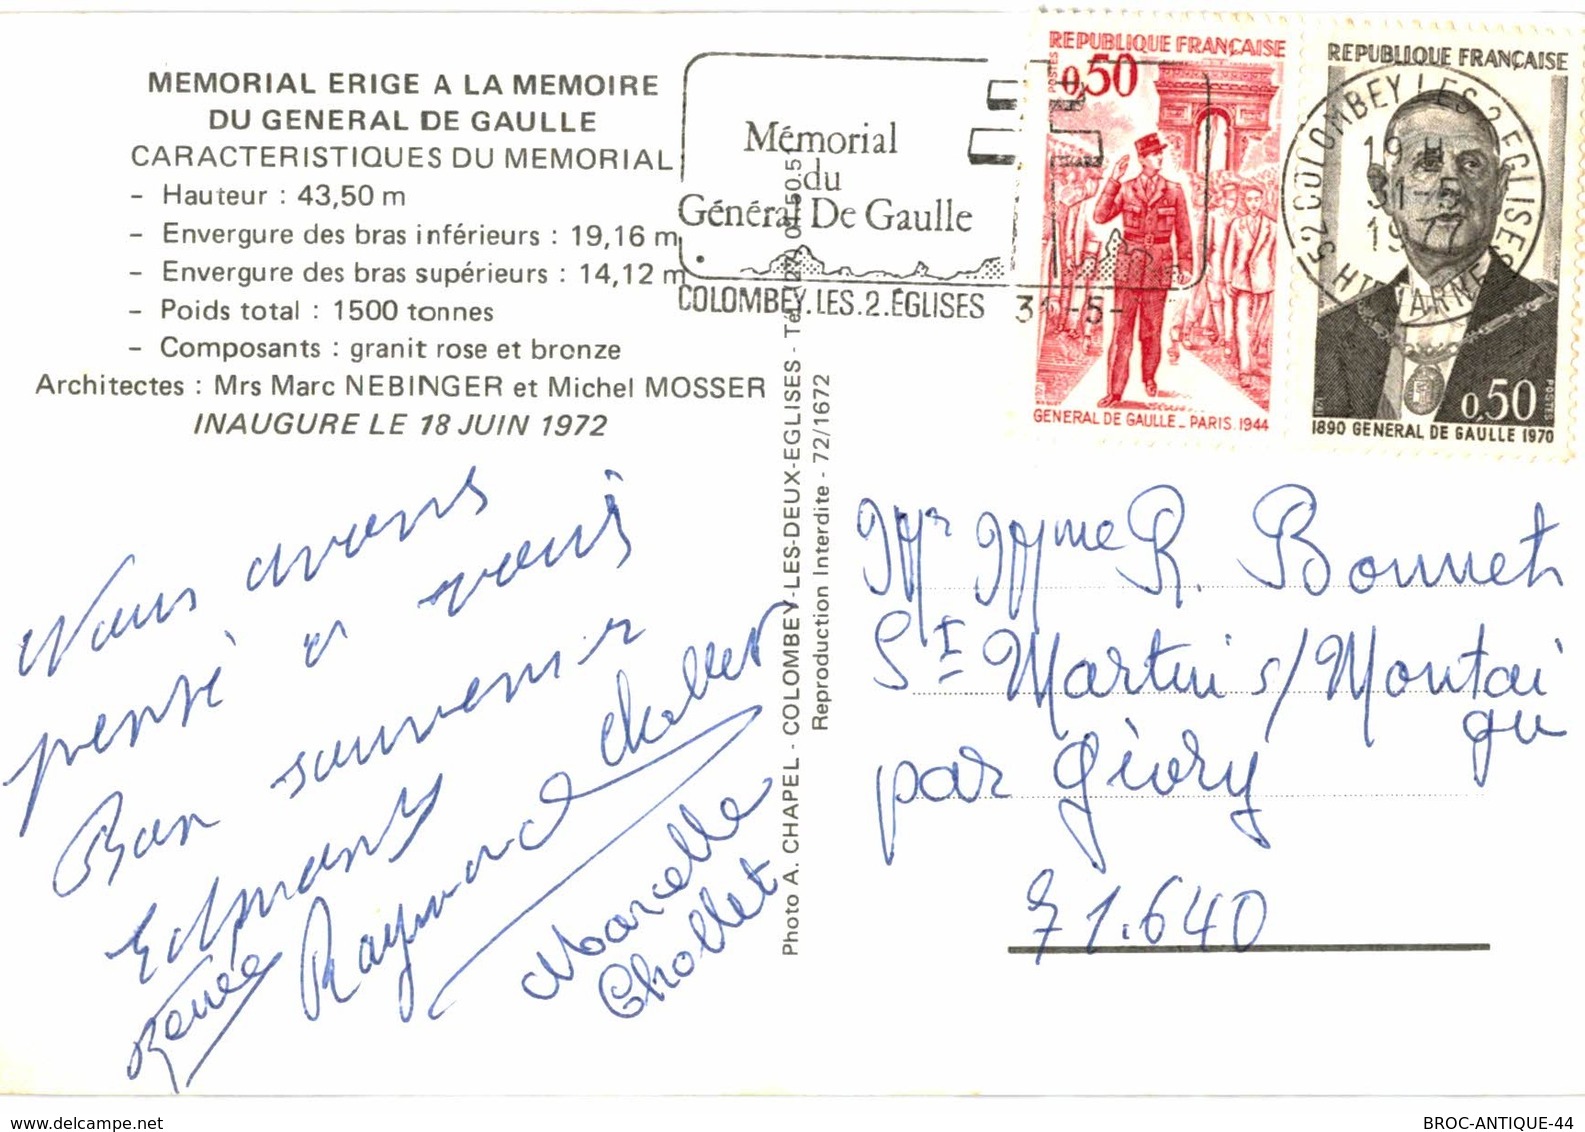 MEMORIAL ERIGE A LA MEMOIRE
DU GENERAL DE GAULLE
CARACTERISTIQUES DU MEMORIAL
- Hauteur : 43,50 m
- Envergure des bras inférieurs : 19,16 m
- Envergure des bras supérieurs : 14,12 m
- Poids total : 1500 tonnes
- Composants : granit rose et bronze
Architectes : Mrs Marc NEBINGER et Michel MOSSER
INAUGURE LE 18 JUIN 1972
Mémorial
du
Général De Gaulle
COLOMBEY.LES.2.ÉGLISES 31-5-
REPUBLIQUE FRANÇAISE
POSTES
0,50
GENERAL DE GAULLE_PARIS.1944
REPUBLIQUE FRANÇAISE
0,50
POSTES
1971
1890 GENERAL DE GAULLE 1970
52 COLOMBEY LES 2 EGLISES
19 H
31-5
1977
HTE MARNE
Nous avons
pensé à vous
Bon souvenir
Edmany
Renée
Raymond Chollet
Marcelle
Chollet
Photo A. CHAPEL - COLOMBEY-LES-DEUX-EGLISES - Tél.
Reproduction Interdite - 72/1672
Mr Mme R. Bonnet
St Martin s/Montai
gu
par Givry
71.640
delcampe.net
BROC-ANTIQUE-44